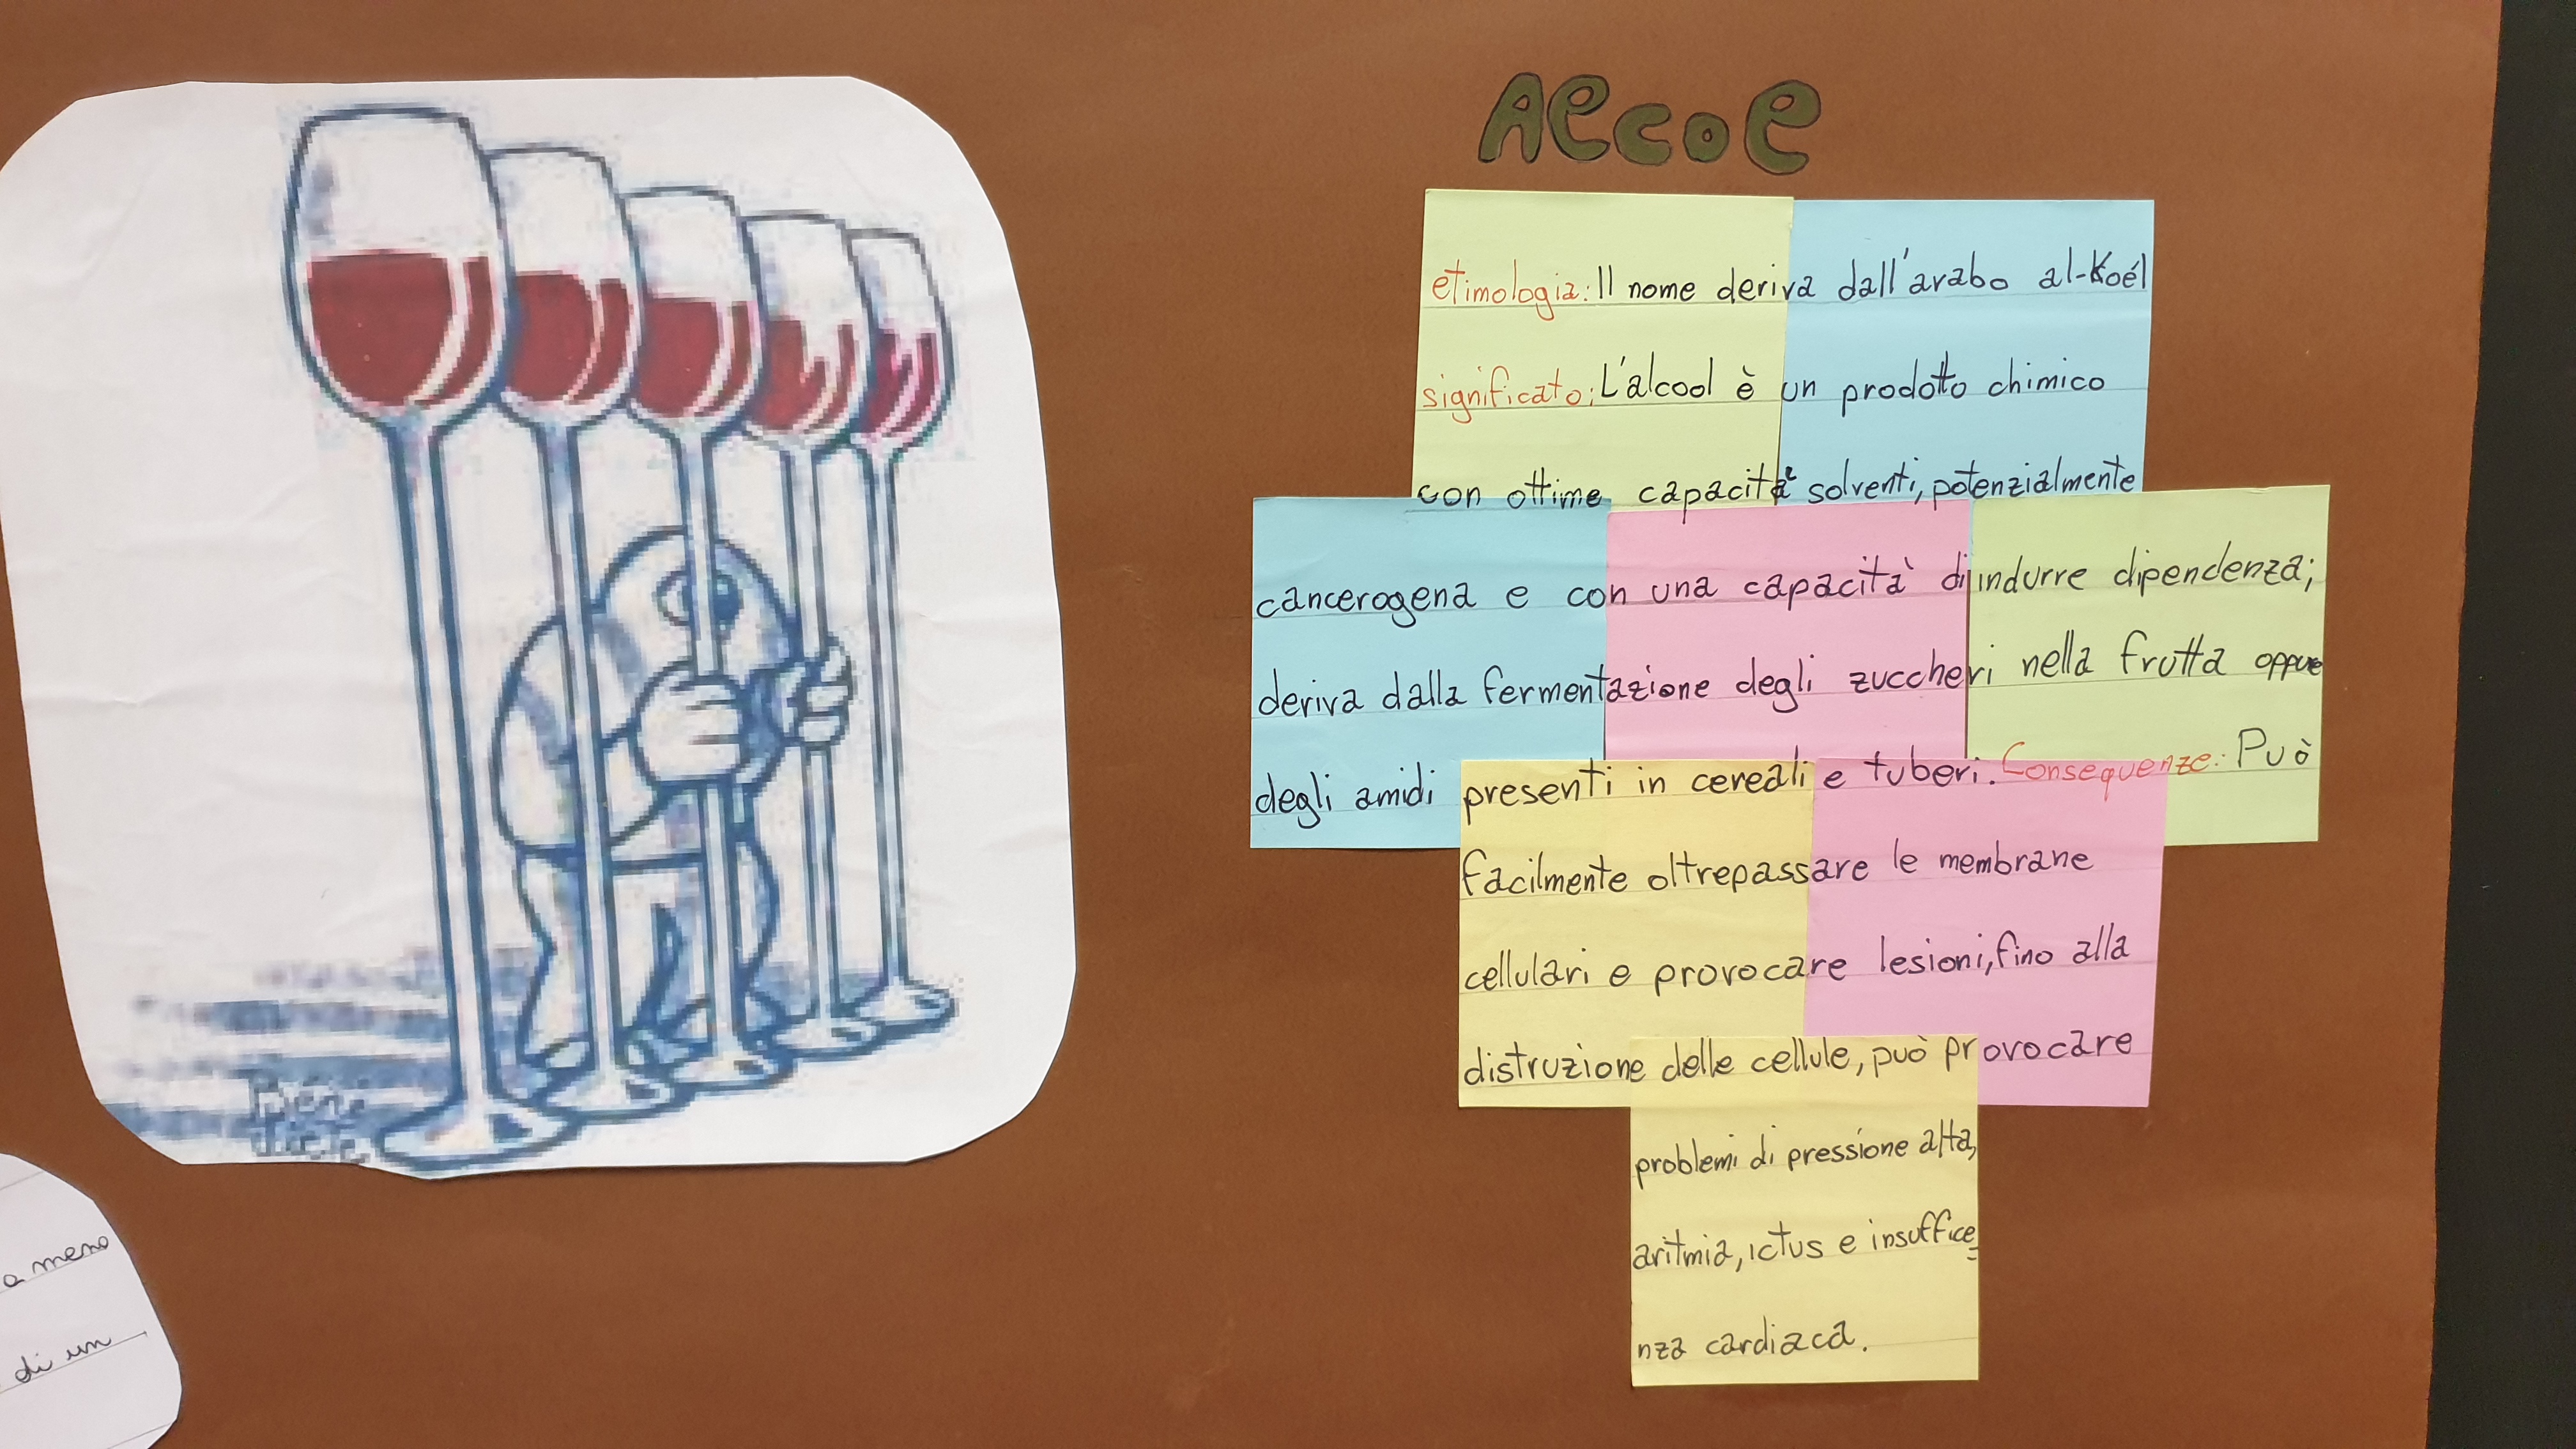 Alcol
etimologia: Il nome deriva dall'arabo al-Koél
significato: L'alcool è un prodotto chimico
con ottime capacità solventi, potenzialmente
cancerogena e con una capacità di indurre dipendenza;
deriva dalla fermentazione degli zuccheri nella frutta oppure
degli amidi presenti in cereali e tuberi. Consequenze: Può
facilmente oltrepassare le membrane
cellulari e provocare lesioni, fino alla
distruzione delle cellule, può provocare
problemi di pressione alta,
aritmia, ictus e insuffice=
nza cardiaca.
a meno
di un